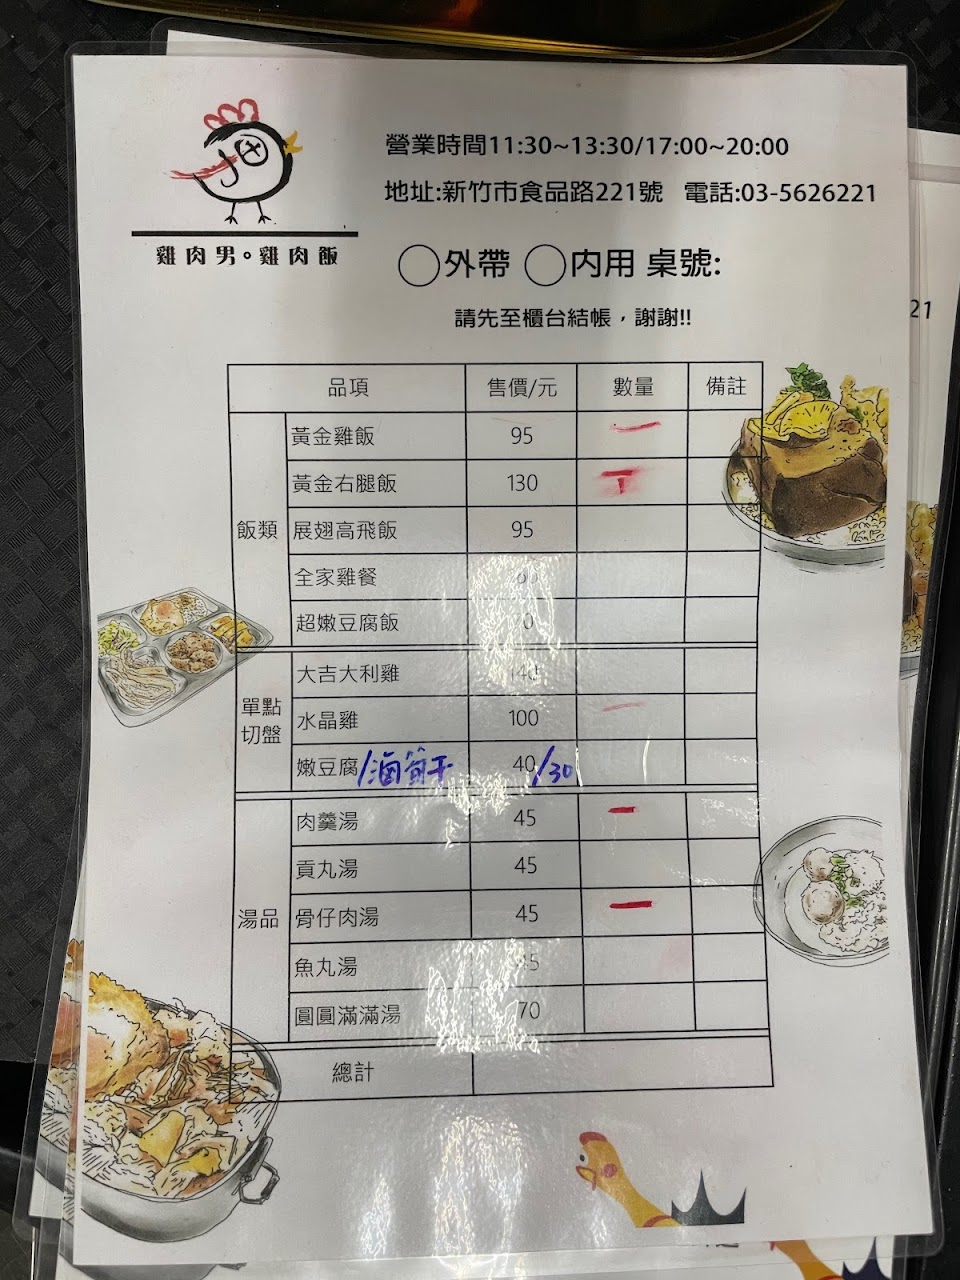 營業時間11:30~13:30/17:00~20:00
地址:新竹市食品路221號 電話:03-5626221
雞肉男。雞肉飯
外帶 內用 桌號:
請先至櫃台結帳，謝謝!!
21
品項 售價/元 數量 備註
飯類
黃金雞飯 95 一
黃金右腿飯 130 T
展翅高飛飯 95
全家雞餐
超嫩豆腐飯
單點切盤
大吉大利雞 140
水晶雞 100
嫩豆腐/滷筍干 40/30
湯品
肉羹湯 45 一
貢丸湯 45
骨仔肉湯 45 一
魚丸湯 45
圓圓滿滿湯 70
總計